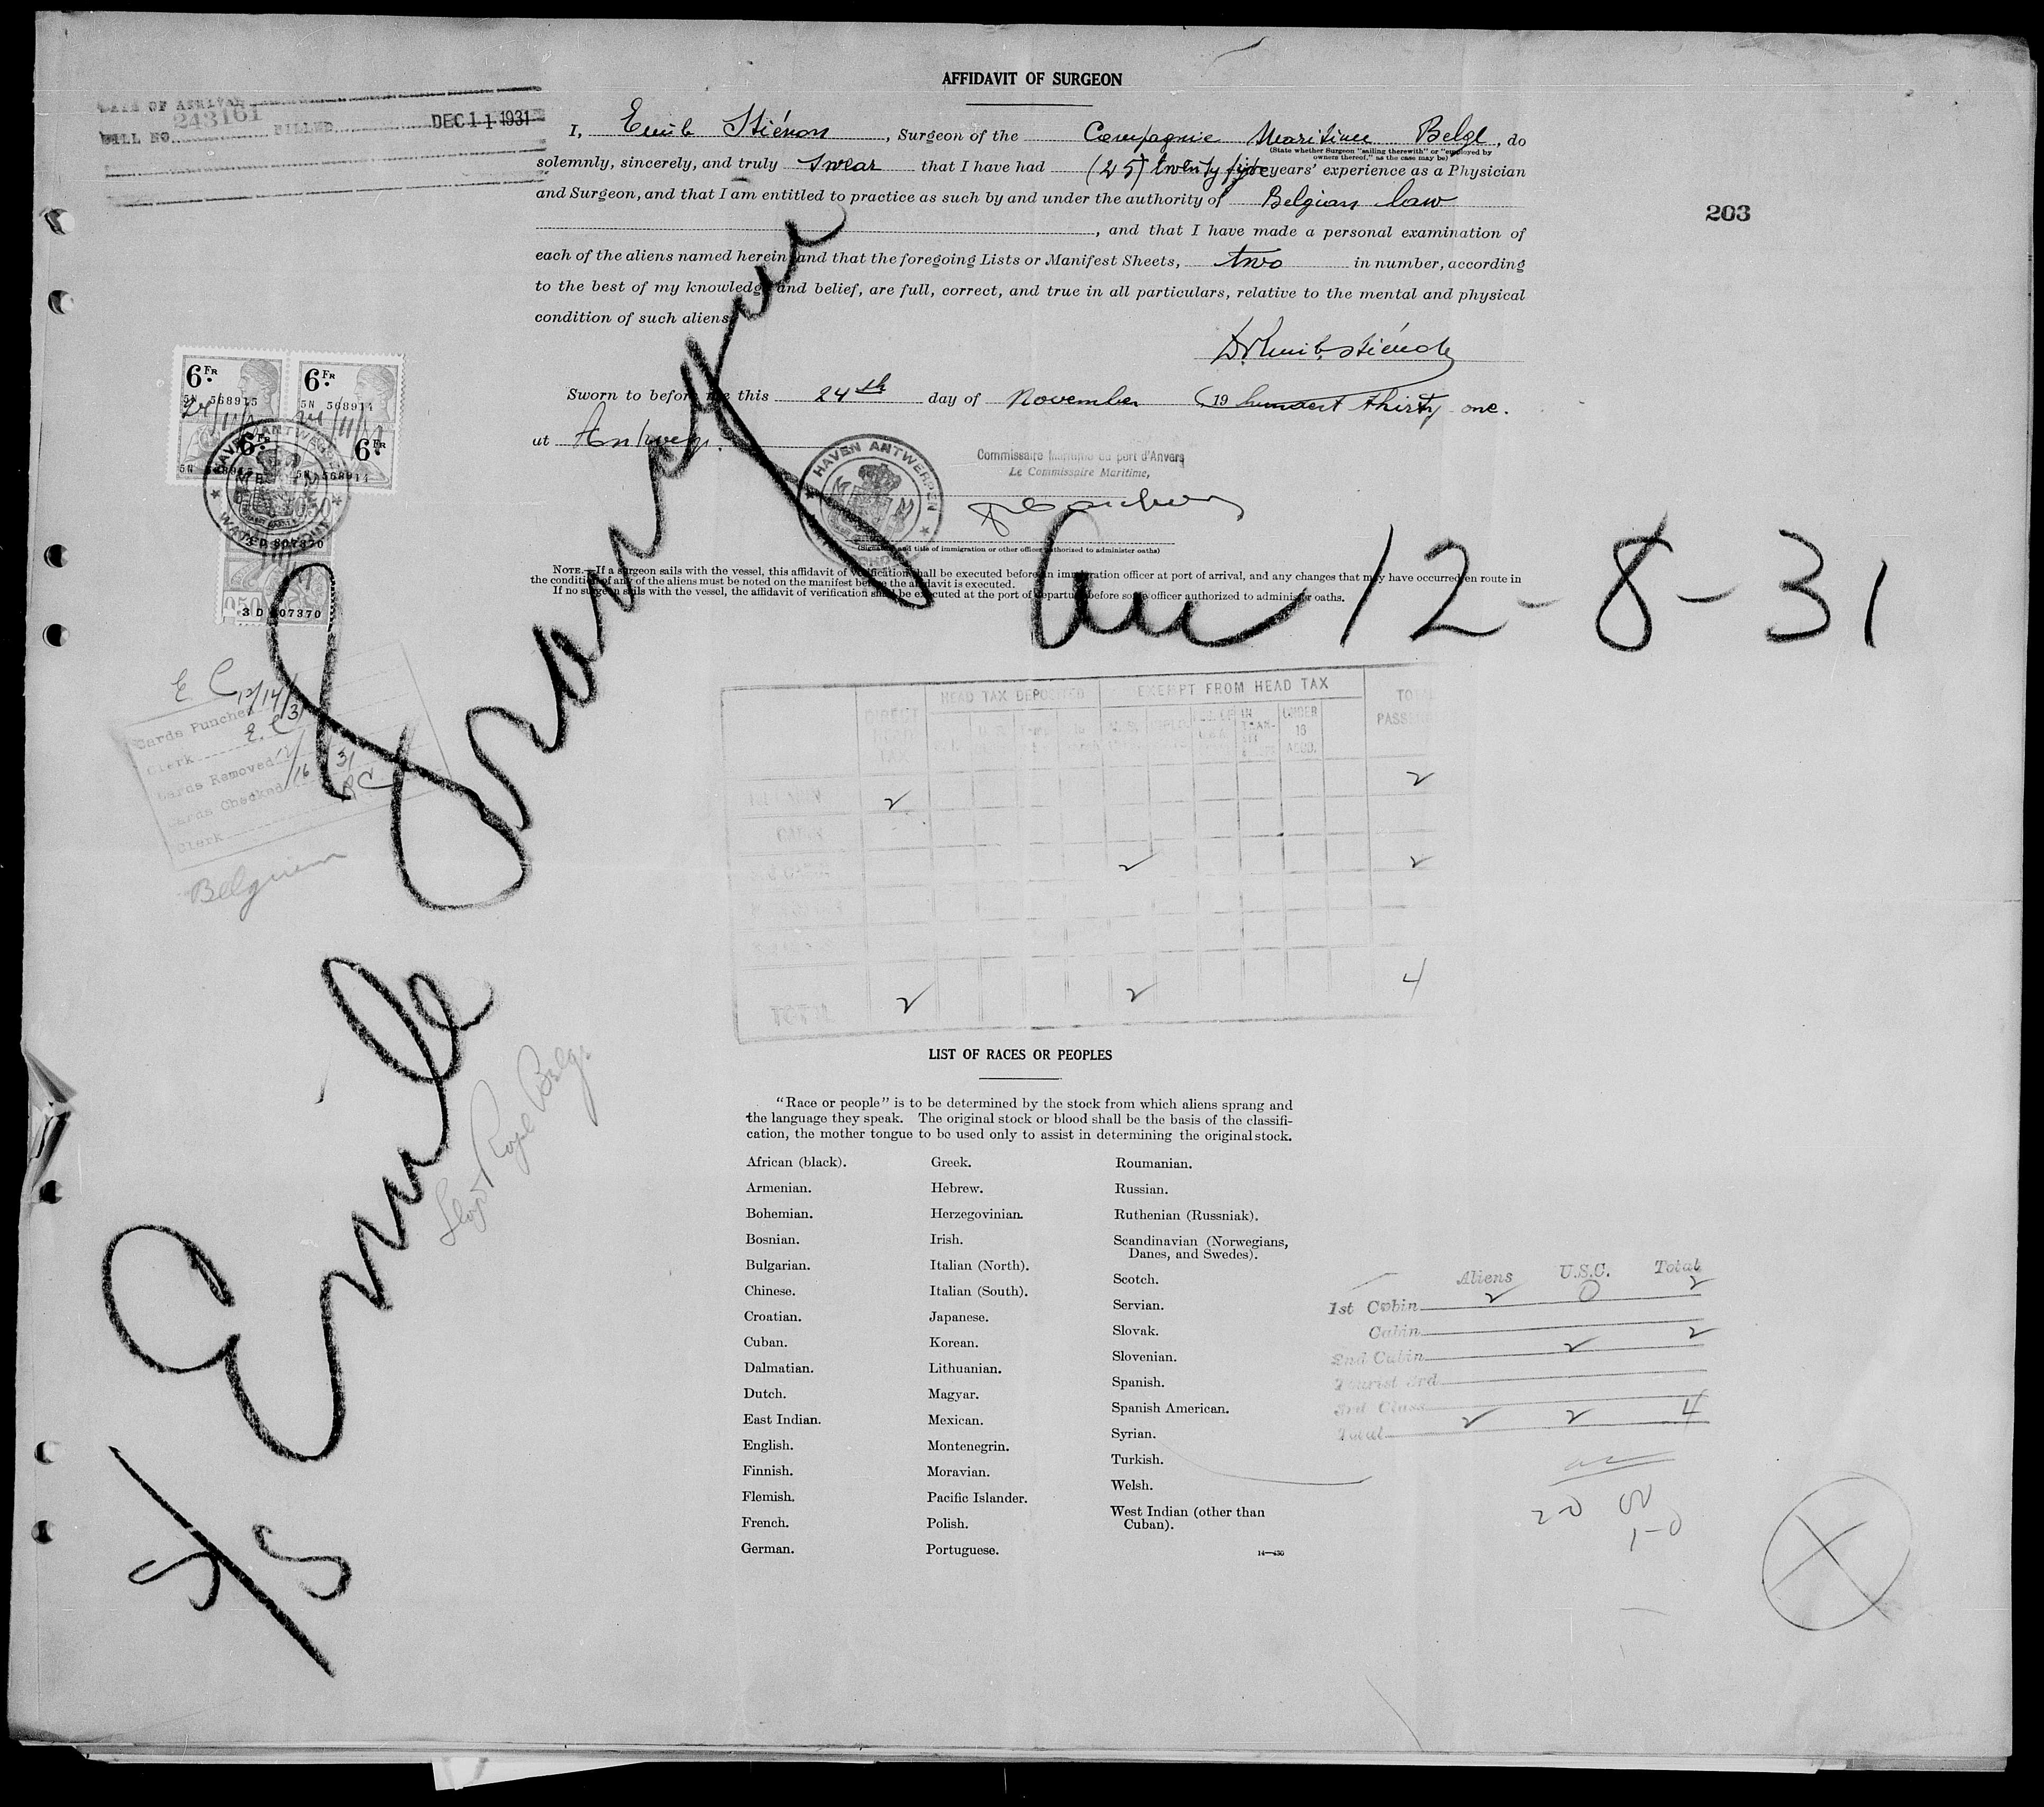 AFFIDAVIT OF SURGEON
DATE OF ARRIVAL
BILL NO. 243161 BILLED DEC 11 1931
I, Emile Stiénon, Surgeon of the Compagnie Maritime Belge, do
(State whether Surgeon "sailing therewith" or "employed by
owners thereof," as the case may be)
solemnly, sincerely, and truly swear that I have had (25) twenty five years' experience as a Physician
and Surgeon, and that I am entitled to practice as such by and under the authority of Belgian law
, and that I have made a personal examination of
each of the aliens named herein and that the foregoing Lists or Manifest Sheets, two in number, according
to the best of my knowledge and belief, are full, correct, and true in all particulars, relative to the mental and physical
condition of such aliens
203
Dr Emile Stiénon
Sworn to before me this 24th day of November 19 hundert thirty one.
at Antwerp.
Commissaire Maritime du port d'Anvers
Le Commissaire Maritime,
HAVEN ANTWERPEN
(Signature and title of immigration or other officer authorized to administer oaths)
NOTE.—If a surgeon sails with the vessel, this affidavit of verification shall be executed before an immigration officer at port of arrival, and any changes that may have occurred en route in
the condition of any of the aliens must be noted on the manifest before the affidavit is executed.
If no surgeon sails with the vessel, the affidavit of verification shall be executed at the port of departure before some officer authorized to administer oaths.
6 FR 6 FR
5N 568915 5N 568914
24/11/31 24/11/31
6 FR 6 FR
5N 568915 5N 568914
HAVEN ANTWERPEN
3 D 807370
0.50 3 D 807370
S/S Emile Francqui
Arr 12-8-31
E C 12/14/31
Cards Punched
Clerk E.C
Cards Removed
Cards Checked 12/16/31
Clerk
Belgium
Lloyd Royal Belge
DIRECT HEAD TAX HEAD TAX DEPOSITED EXEMPT FROM HEAD TAX TOTAL PASSENGERS
IN TRANSIT UNDER 16 ACCD.
1ST CABIN 2 2
CABIN
2 2
TOTAL 2 2 4
LIST OF RACES OR PEOPLES
"Race or people" is to be determined by the stock from which aliens sprang and
the language they speak. The original stock or blood shall be the basis of the classifi-
cation, the mother tongue to be used only to assist in determining the original stock.
African (black).
Armenian.
Bohemian.
Bosnian.
Bulgarian.
Chinese.
Croatian.
Cuban.
Dalmatian.
Dutch.
East Indian.
English.
Finnish.
Flemish.
French.
German.
Greek.
Hebrew.
Herzegovinian.
Irish.
Italian (North).
Italian (South).
Japanese.
Korean.
Lithuanian.
Magyar.
Mexican.
Montenegrin.
Moravian.
Pacific Islander.
Polish.
Portuguese.
Roumanian.
Russian.
Ruthenian (Russniak).
Scandinavian (Norwegians,
Danes, and Swedes).
Scotch.
Servian.
Slovak.
Slovenian.
Spanish.
Spanish American.
Syrian.
Turkish.
Welsh.
West Indian (other than
Cuban).
14—430
Aliens U.S.C. Total
1st Cabin 2 0 2
Cabin
2nd Cabin 2 2
Tourist 3rd
3rd Class
Total 2 2 4
2-0
1-0